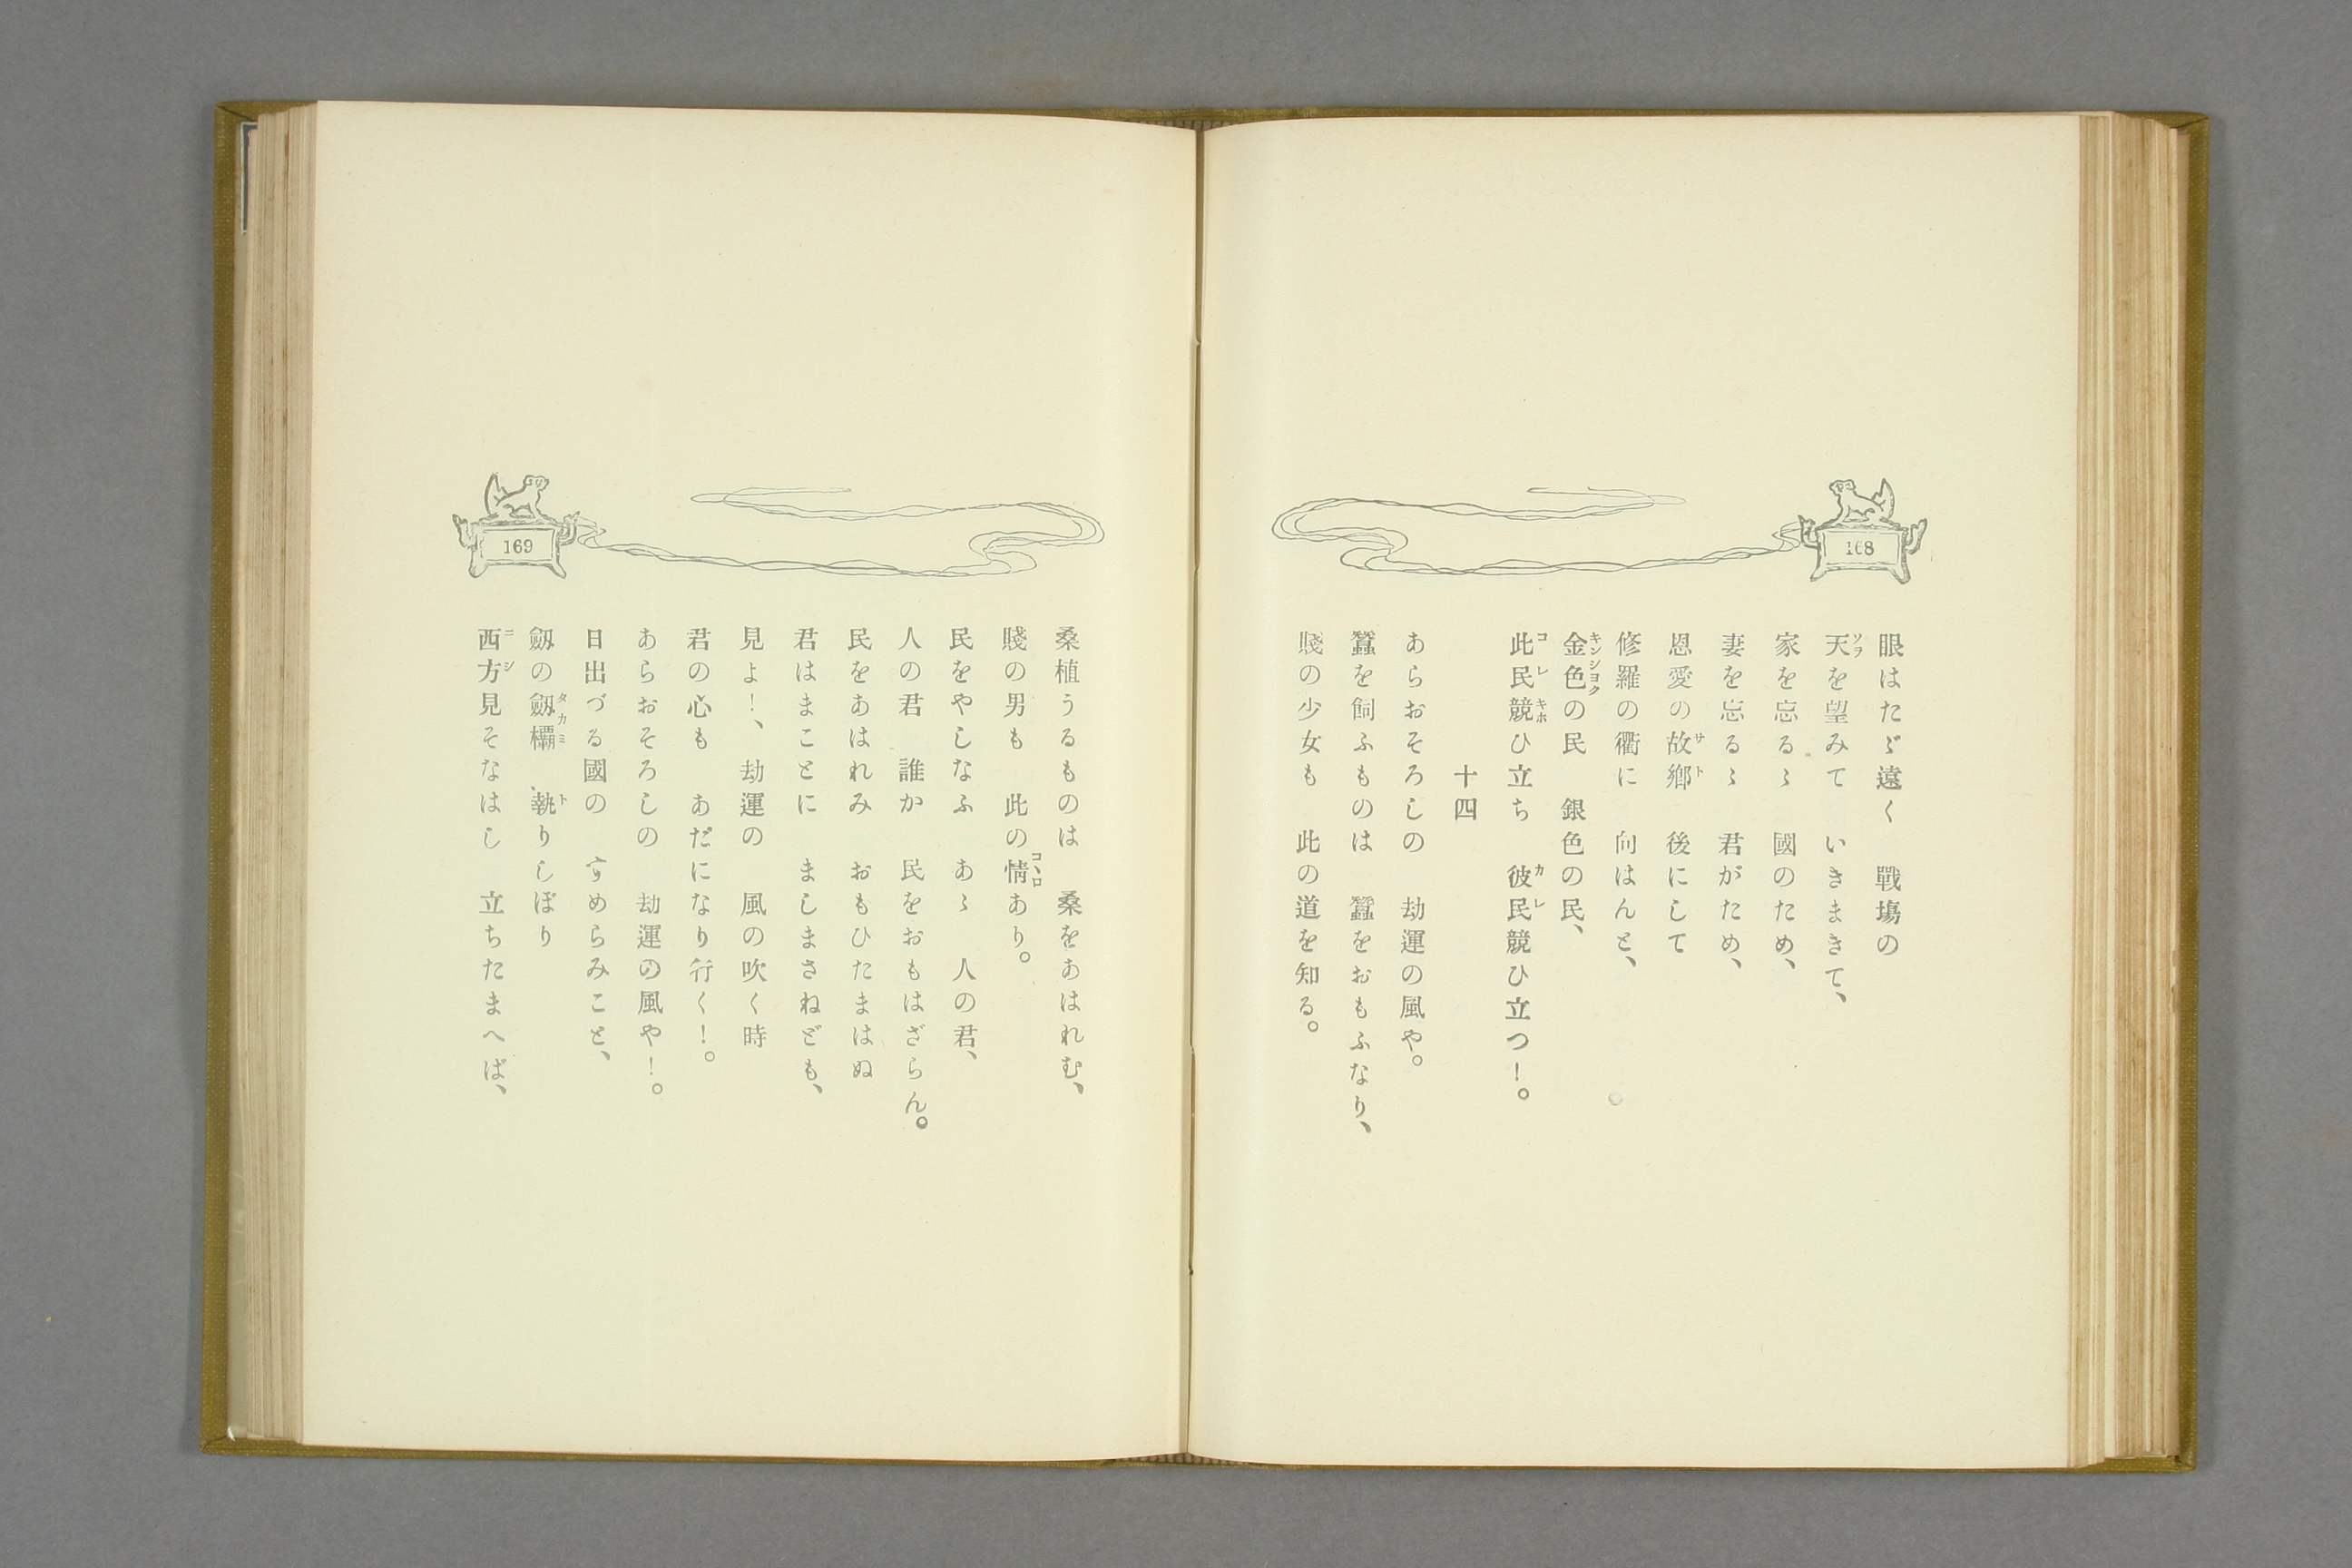 168
眼はたゞ遠く　戰塲の
天を望みて　いきまきて、
家を忘るゝ　國のため、
妻を忘るゝ　君がため、
恩愛の故鄕　後にして
修羅の衢に　向はんと、
金色の民　銀色の民、
此民競ひ立ち　彼民競ひ立つ！。
十四
あらおそろしの　劫運の風や。
蠶を飼ふものは　蠶をおもふなり、
賤の少女も　此の道を知る。
169
桑植うるものは　桑をあはれむ、
賤の男も　此の情あり。
民をやしなふ　あゝ　人の君、
人の君　誰か　民をおもはざらん。
民をあはれみ　おもひたまはぬ
君はまことに　ましまさねども、
見よ！、劫運の　風の吹く時
君の心も　あだになり行く！。
あらおそろしの　劫運の風や！。
日出づる國の　すめらみこと、
劔の劔欛　執りしぼり
西方見そなはし　立ちたまへば、